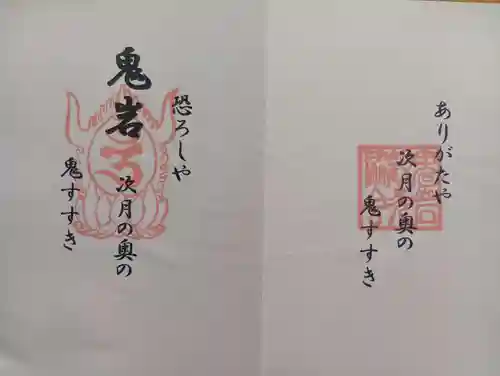 ありがたや
次月の奥の
鬼すすき
恐ろしや
鬼岩
次月の奥の
鬼すすき